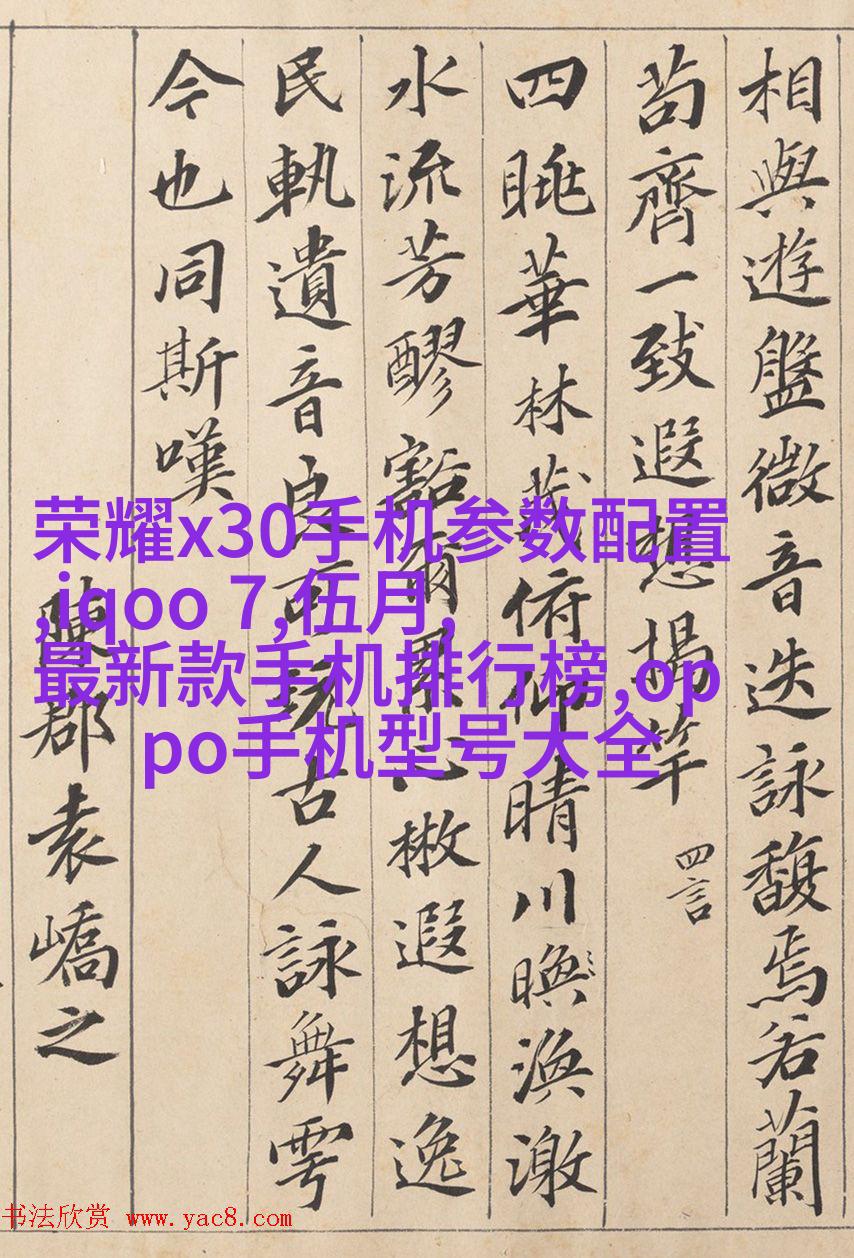 相與遊盤微音迭詠馥焉若蘭
苟齊一致遐想揭竿 四言
四眺華林茂俯仰晴川㬇渙激
水流芳醪豁爾累心散遐想逸
民軌遺音良可玩古人詠舞雩
今也同斯嘆
陳郡袁嶠之
荣耀x30手机参数配置
,iqoo 7,伍月,
最新款手机排行榜,op
po手机型号大全
书法欣赏 www.yac8.com